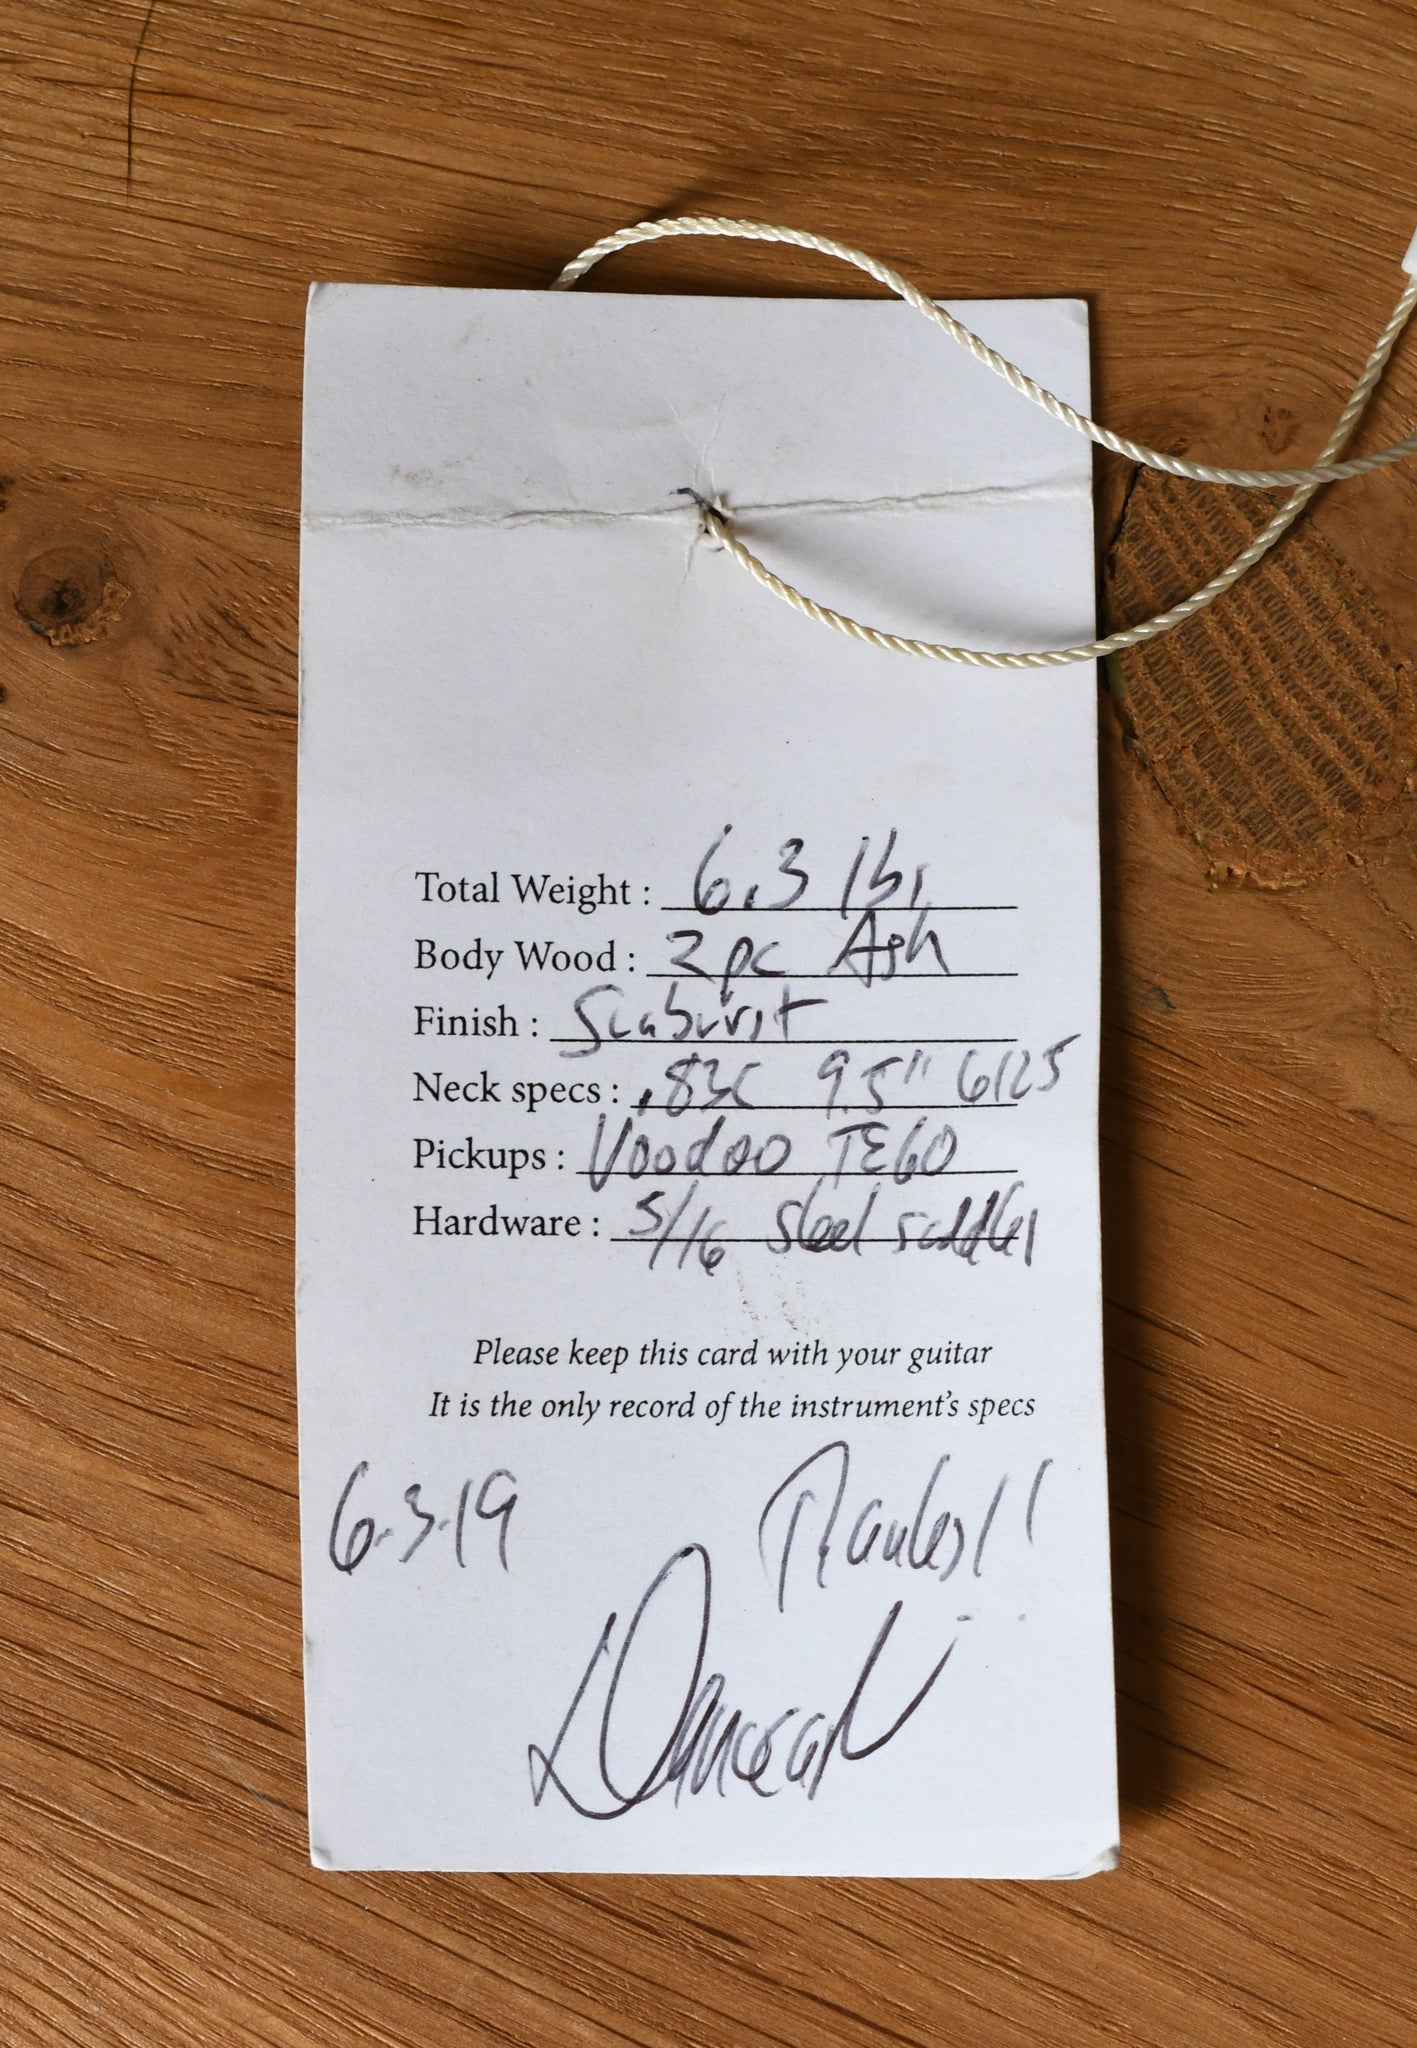 Total Weight : 6.3 lbs
Body Wood : 2 pc Ash
Finish : Sunburst
Neck specs : .83C 9.5" 6125
Pickups : Voodoo TE60
Hardware : 5/16 steel saddles
Please keep this card with your guitar
It is the only record of the instrument's specs
6.3.19 Thanks!!